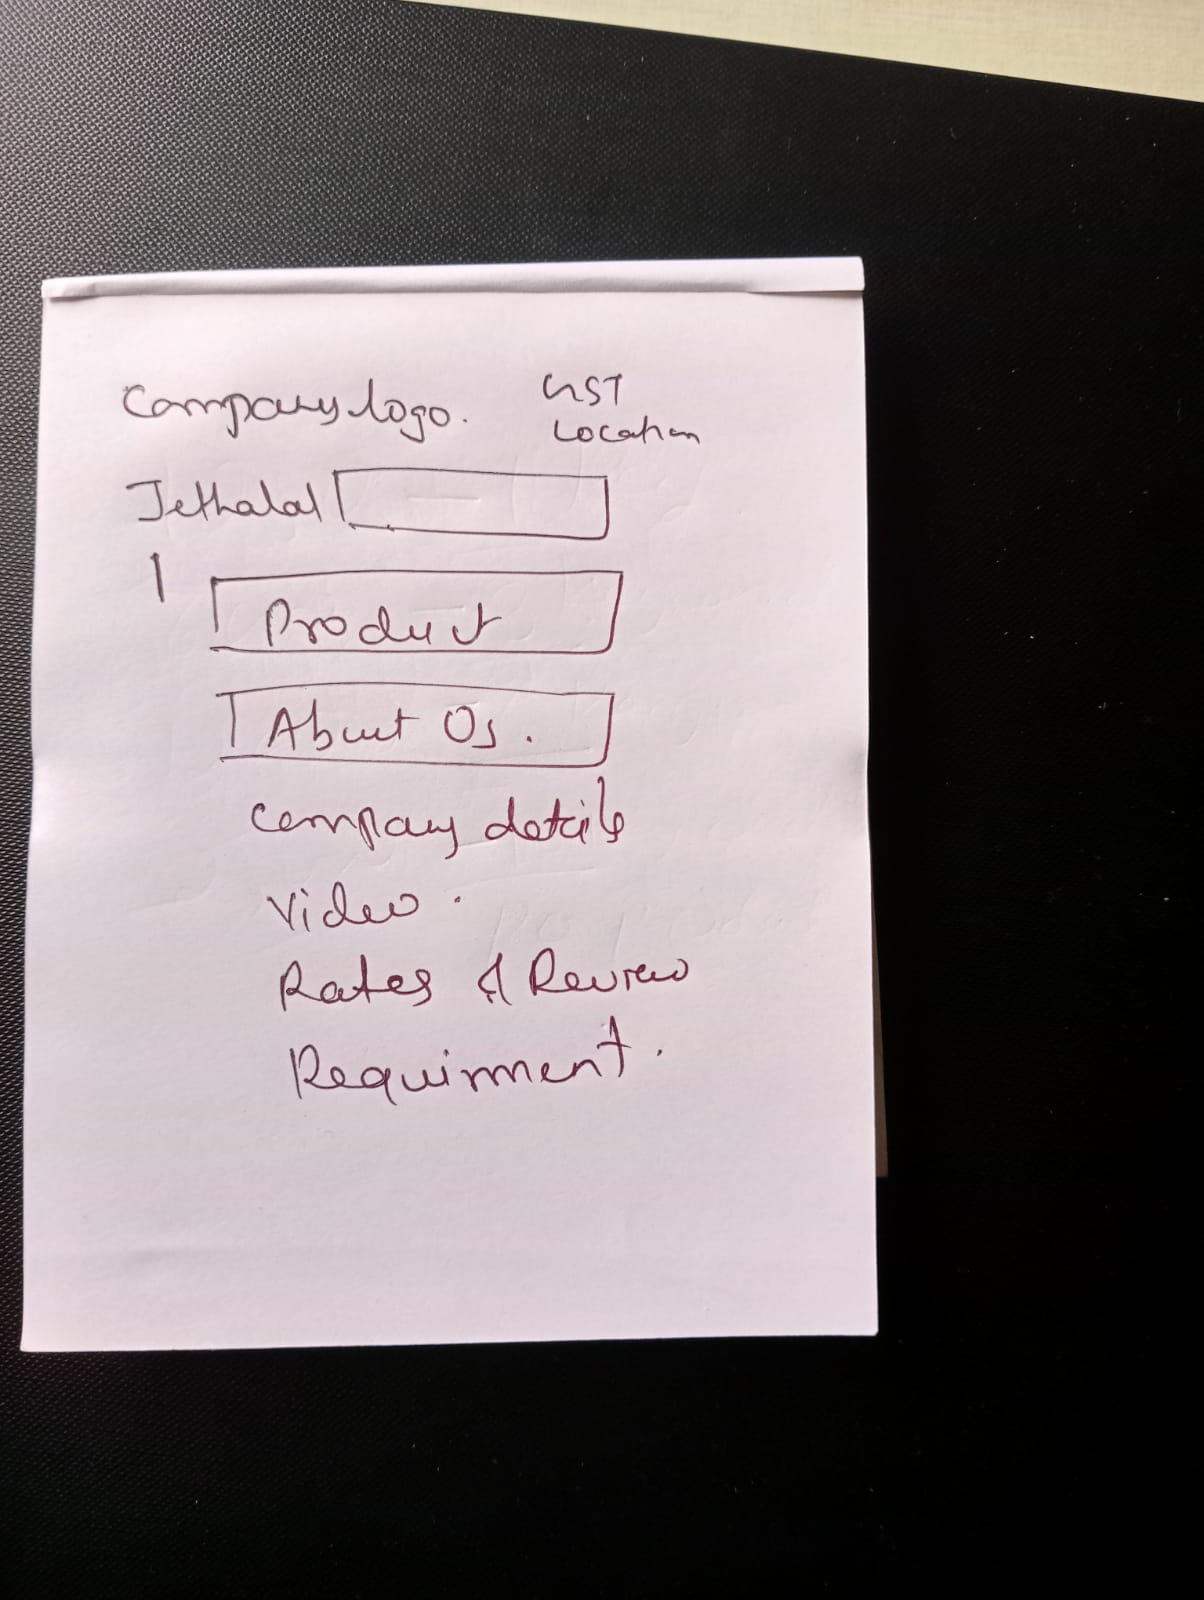 Company logo.
GST
Location
Jethalal
Product
About Us.
Company details
Video.
Rates & Review
Requirment.